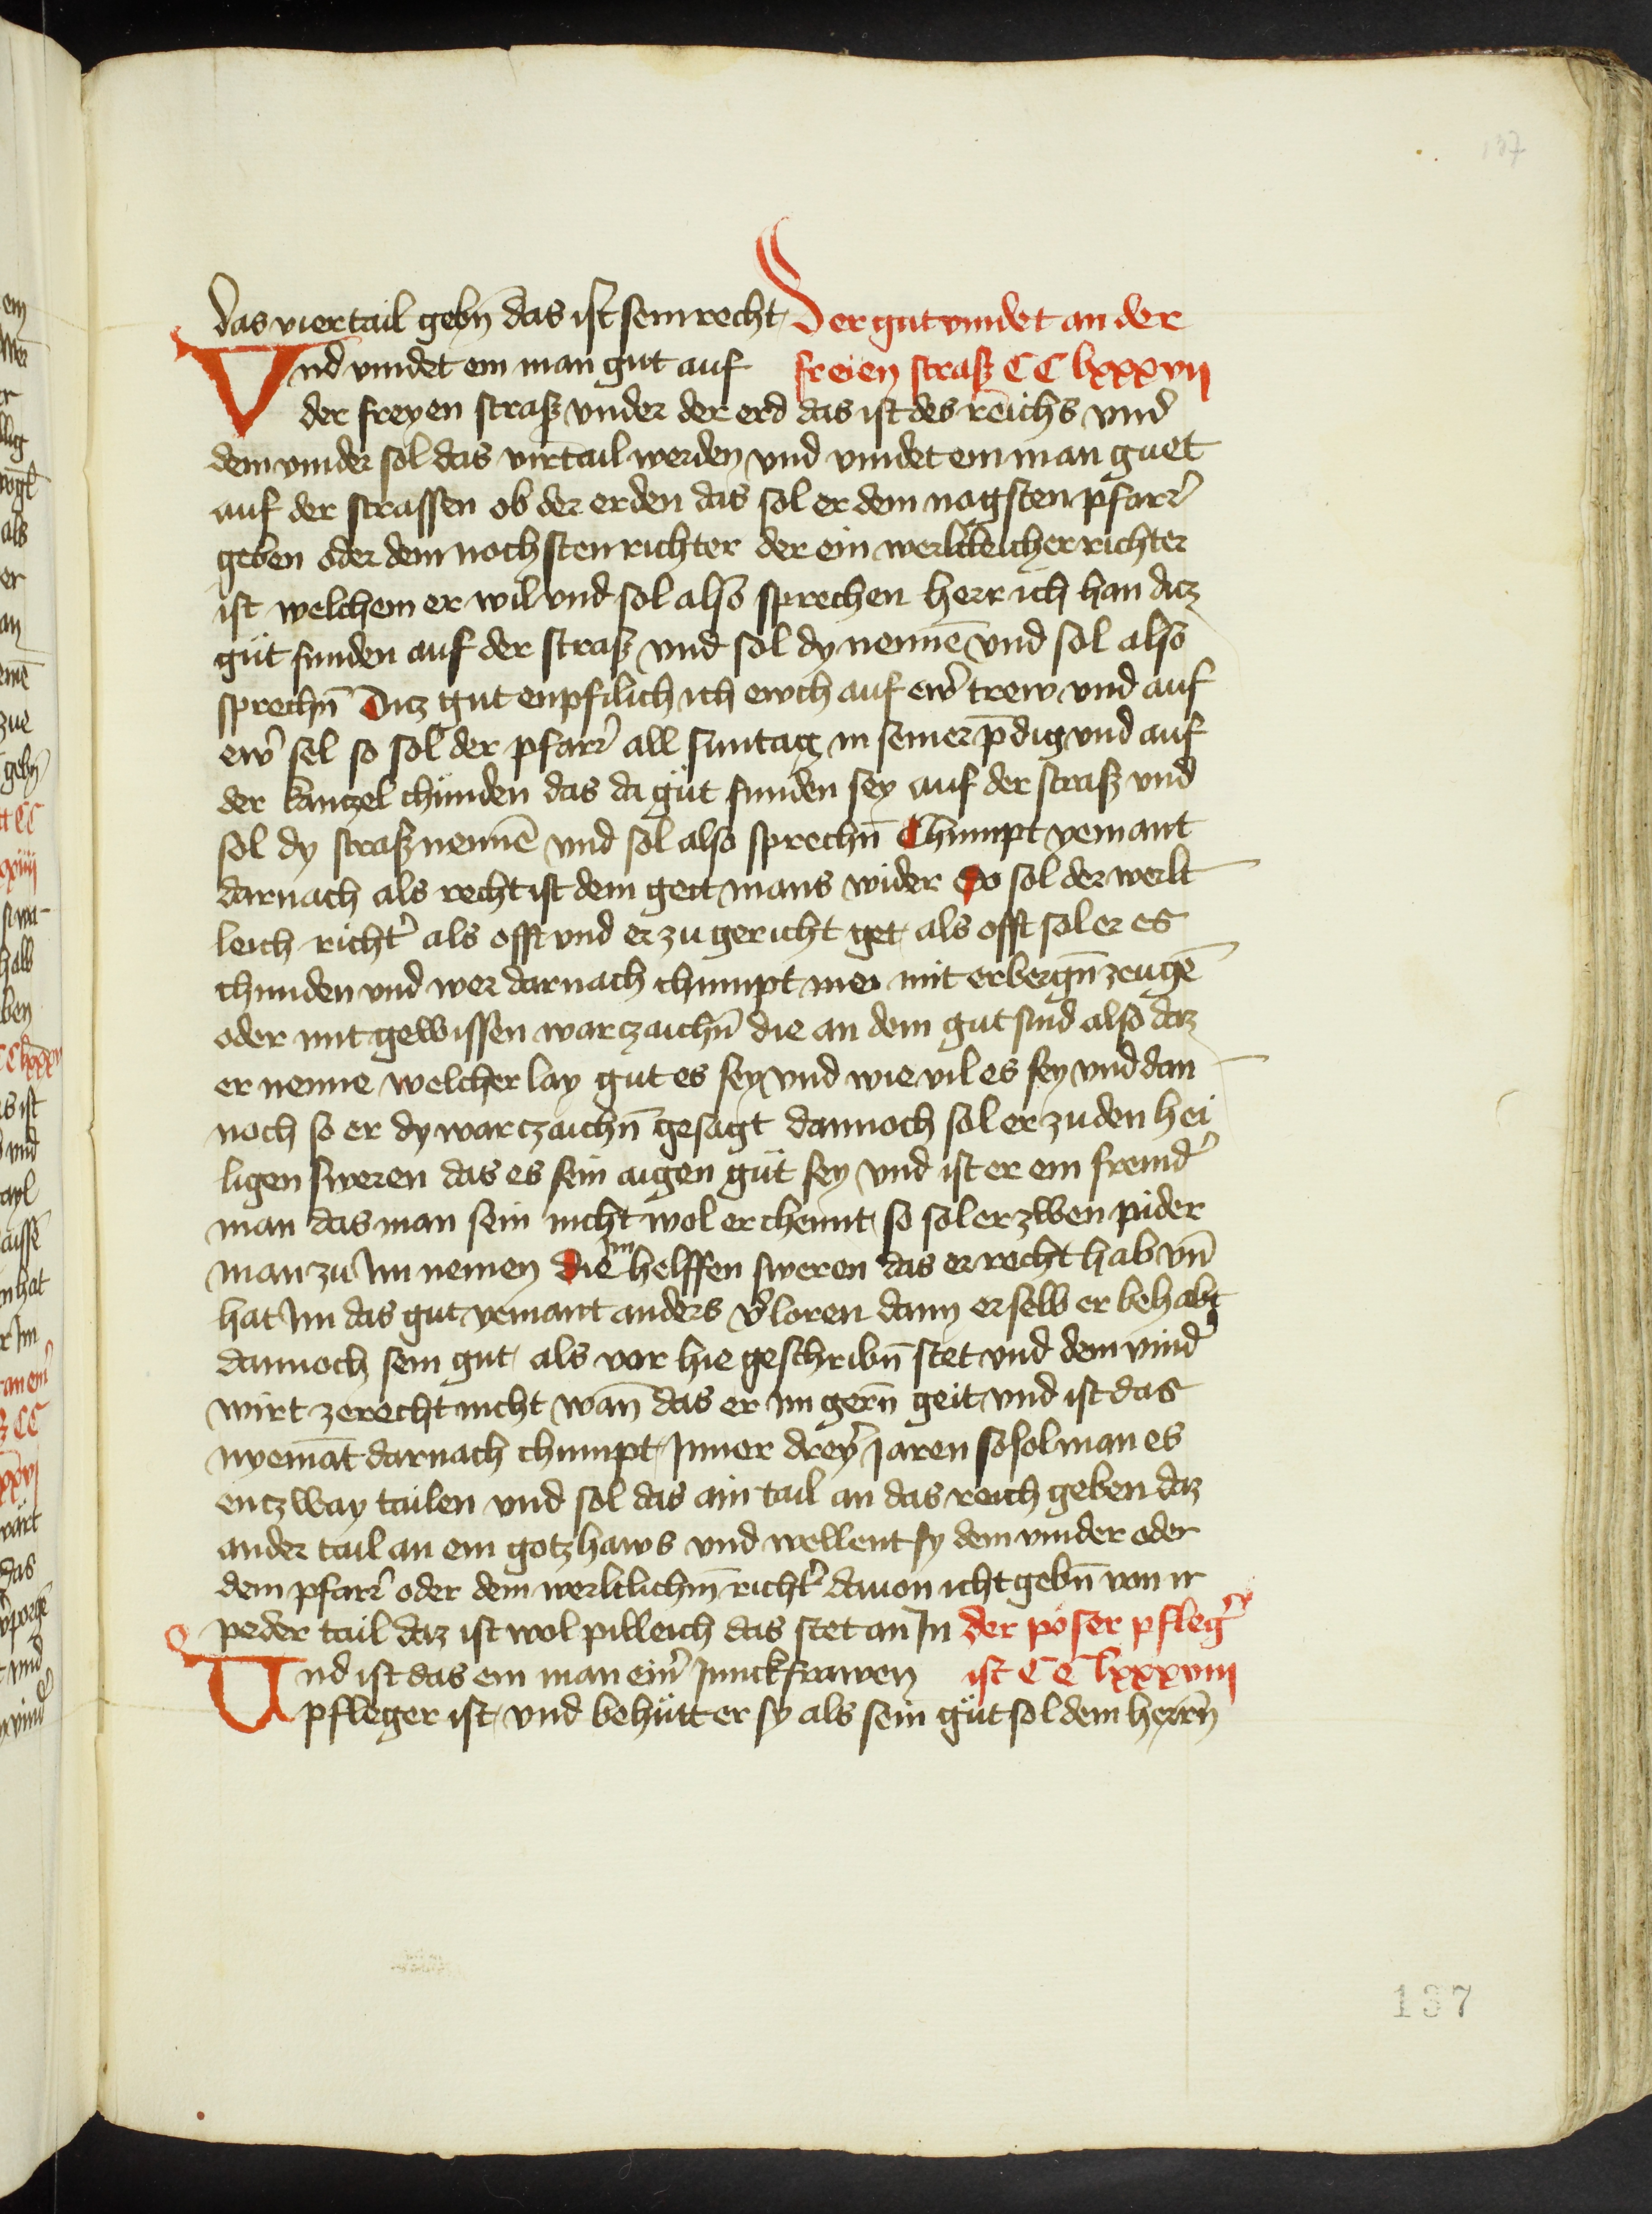 137
das viertail gebn̄ das ist sein recht Der gut vindet an der
Vnd vindet ein man gut auf freien straß CC lxxxvij
der freyen straß vnder der erd das ist des reichs vnd
dem vinder sol das virtail werden vnd vindet ein man guet
auf der strassen ob der erden das sol er dem nagsten pfarr̉
geben oder dem nochsten richter der ein werltleicher richter
ist welchem er wil vnd sol also sprechen herr ich han dicz
güt funden auf der straß vnd sol dy nennē vnd sol also
sprechn̄ Dicz gut enpfilich ich ewch auf ew̉ trew vnd auf
ew̉ sel so sol der pfarr̉ all suntag in seiner p̄dig vnd auf
der kanczel chünden das da güt funden sey auf der straß vnd
sol dy straß nennē vnd sol also sprechn̄ Chumpt yemant
darnach als recht ist dem geit mans wider So sol der werlt
leich richt̉ als offt vnd er zu gericht get als offt sol er es
chunden vnd wer darnach chumpt mit erbergn̄ zeugē
oder mit gewissen warczaichn̄ die an dem gut sind also daz
er nenne welcher lay gut es sey vnd wie vil es sey vnd dan
noch so er dy warczaichn̄ gesagt dannoch sol er zu den hei
ligen sweren das es sein aigen güt sey vnd ist er ein fremd̉
man das man sein nicht wol erchennt so sol er zwen pider
man zu im nemen die im helffen sweren das er recht hab vn̄
hat im das gut yemant anders v̉loren dann er selb er behabt
dannoch sein gut als vor hie geschribn̄ stet vnd dem vind̉
wirt ze recht nicht wan̄ das er im gern̄ geit vnd ist das
nyemāt darnach chumpt Inner drey̆ Jaren so sol man es
enczway tailen vnd sol das ain tail an das reich geben daz
ander tail an ein gotzhaws vnd wellent sy dem vinder oder
dem pfarr̉ oder dem werltlichm̄ richt̉ dauon icht gebn̄ von ir
peder tail daz ist wol pilleich das stet an In der poser pfleg̉
Vnd ist das ein man ein̉ Junckfrawen ist CC lxxxviij
pfleger ist vnd behütt er sy als sein güt sol dem herrn̄
137